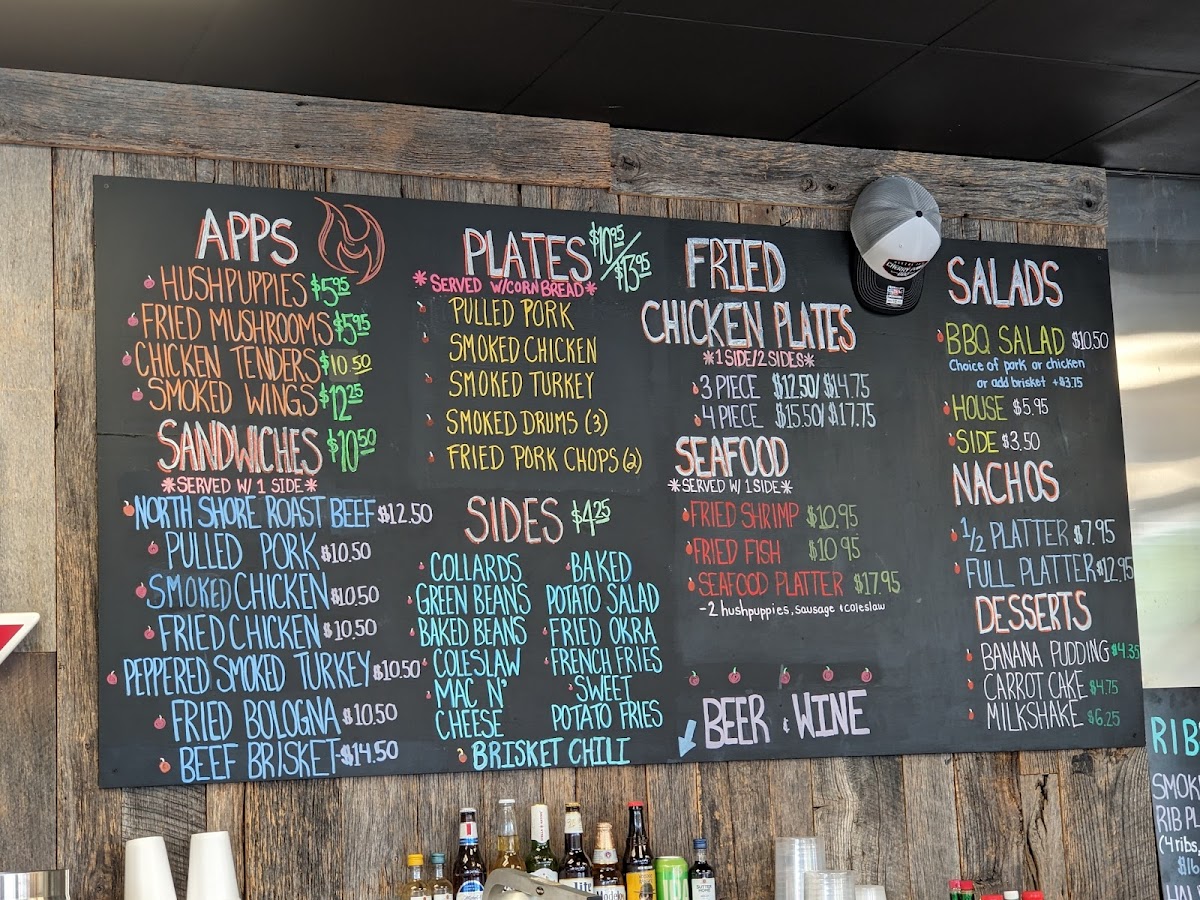 APPS
HUSHPUPPIES $5.95
FRIED MUSHROOMS $5.95
CHICKEN TENDERS $10.50
SMOKED WINGS $12.25
SANDWICHES $10.50
*SERVED W/ 1 SIDE*
NORTH SHORE ROAST BEEF $12.50
PULLED PORK $10.50
SMOKED CHICKEN $10.50
FRIED CHICKEN $10.50
PEPPERED SMOKED TURKEY $10.50
FRIED BOLOGNA $10.50
BEEF BRISKET-$14.50
PLATES $10.95/$13.95
*SERVED W/CORNBREAD*
PULLED PORK
SMOKED CHICKEN
SMOKED TURKEY
SMOKED DRUMS (3)
FRIED PORK CHOPS (2)
SIDES $4.25
COLLARDS
GREEN BEANS
BAKED BEANS
COLESLAW
MAC N'
CHEESE
BAKED
POTATO SALAD
FRIED OKRA
FRENCH FRIES
SWEET
POTATO FRIES
BRISKET CHILI
FRIED
CHICKEN PLATES
*1 SIDE/2 SIDES*
3 PIECE $12.50/$14.75
4 PIECE $15.50/$17.75
SEAFOOD
*SERVED W/ 1 SIDE*
FRIED SHRIMP $10.95
FRIED FISH $10.95
SEAFOOD PLATTER $17.95
-2 hushpuppies, sausage + coleslaw
BEER & WINE
SALADS
BBQ SALAD $10.50
Choice of pork or chicken
or add brisket +$3.75
HOUSE $5.95
SIDE $3.50
NACHOS
1/2 PLATTER $7.95
FULL PLATTER $12.95
DESSERTS
BANANA PUDDING $4.35
CARROT CAKE $4.75
MILKSHAKE $6.25
RIB
SMOK
RIB PL
(4 ribs,
$16